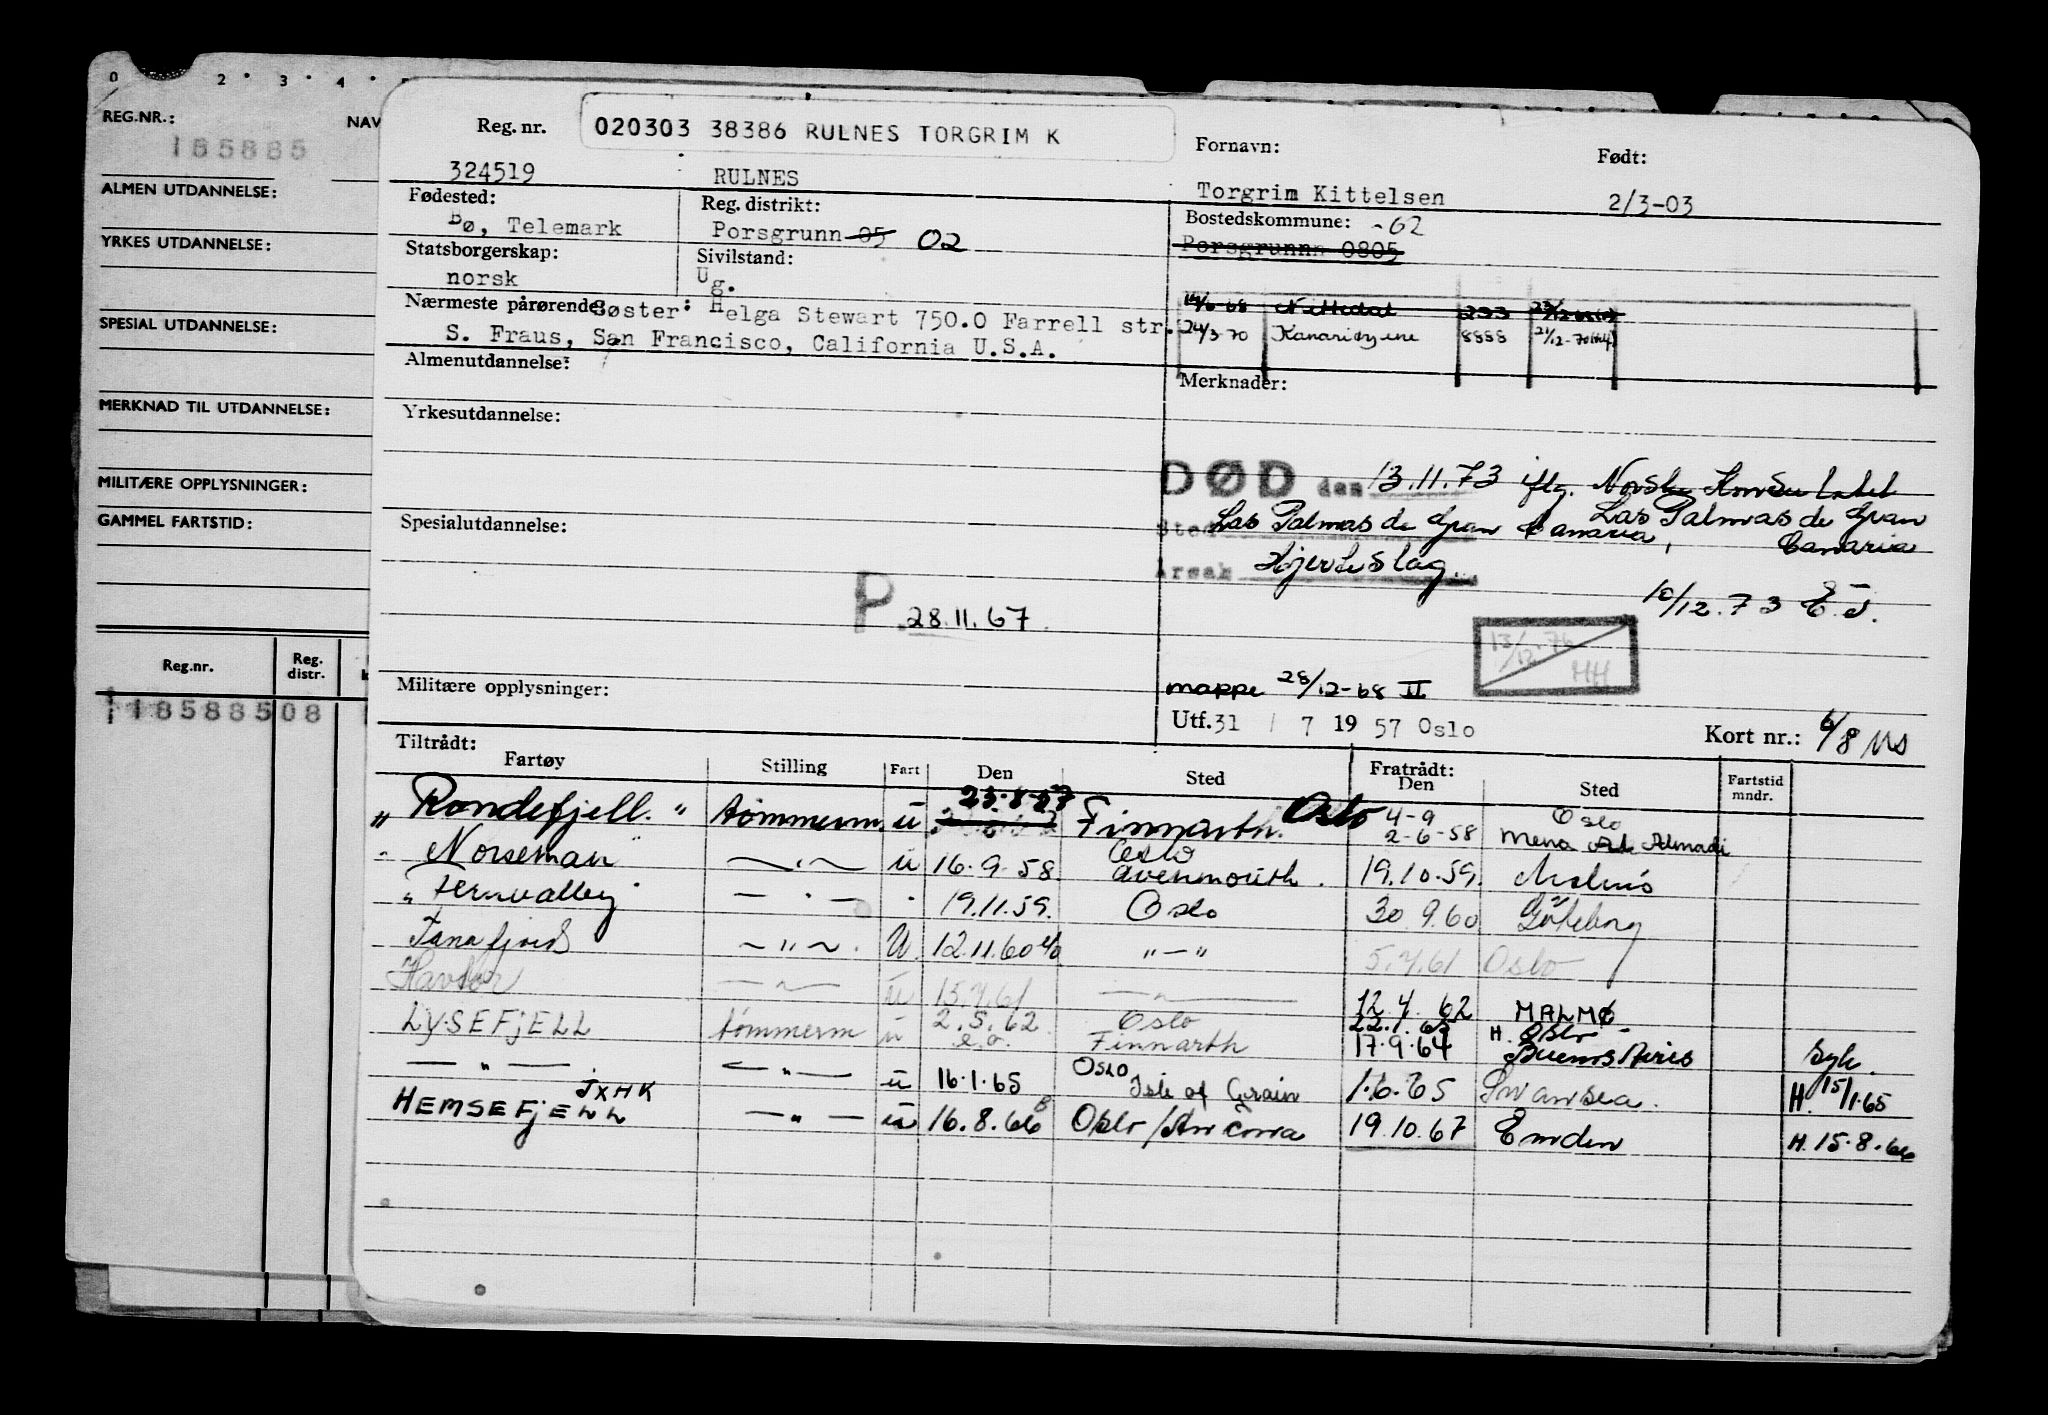 0 2 3 4
REG.NR.:
NAV
185885
ALMEN UTDANNELSE:
YRKES UTDANNELSE:
SPESIAL UTDANNELSE:
MERKNAD TIL UTDANNELSE:
MILITÆRE OPPLYSNINGER:
GAMMEL FARTSTID:
Reg.nr. Reg. distr.
18588508
Reg. nr. 020303 38386 RULNES TORGRIM K
Fornavn: Født:
324519 RULNES Torgrim Kittelsen 2/3-03
Fødested: Reg. distrikt: Bostedskommune: -62
Bø, Telemark Porsgrunn 05 02 Porsgrunn 0805
Statsborgerskap: Sivilstand:
norsk Ug.
Nærmeste pårørende: Søster: Helga Stewart 750.0 Farrell str.
S. Fraus, San Francisco, California U.S.A.
14/6-68 Nittedal 233
24/3 70 Kanariøyene 8888 21/12-70
Almenutdannelse:
Merknader:
Yrkesutdannelse:
DØD den 13.11.73 iflg. Norske Konsulatet
Las Palmas de Gran Canaria
Sted Las Palmas de Gran Canaria,
Årsak Hjerteslag.
10/12.73 E.J.
Spesialutdannelse:
P. 28.11.67.
13/12-76 HH
Militære opplysninger:
mappe 28/12-68 II
Utf. 31 / 7 1957 Oslo
Kort nr.: 6/8 MS
Tiltrådt: Fratrådt:
Fartøy Stilling Fart Den Sted Den Sted Fartstid mndr.
„ Rondefjell. " tømmerm. u 23.8.57 Finnarth. Oslo 4-9 Oslo
2-6-58 Mena Al Ahmadi
Norseman —"— u 16.9.58. Oslo Avenmouth. 19.10.59. Malmö
" Fernvalley —"— " 19.11.59. Oslo 30 9.60 Göteborg
Tanafjord —"—. U. 12.11.60 "—" 5.4.61 Oslo
Havtor —"— u 15.4.61 —"— 12.4.62 MALMØ
LYSEFJELL tømmerm u 2.5.62 Oslo 22.1.63 H. Oslo
e.o. Finnarth 17.9.64 Buenos Aires Syk.
—"— —"— u 16.1.65 Oslo Isle of Grain 1.6.65 Swansea. H. 15/1.65
JXHK
HEMSEFJELL —"— u 16.8.66 Oslo/Ancona 19.10.67 Emden H. 15.8.66